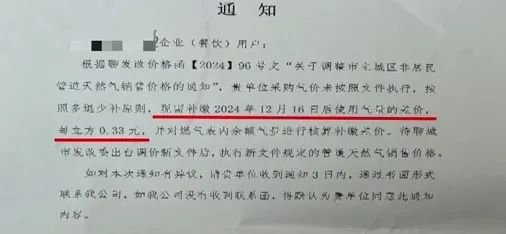 通 知
企业（餐饮）用户：
根据聊发改价格函【2024】96号文“关于调整市主城区非居民
管道天然气销售价格的通知”，贵单位采购气价未按照文件执行，按
照多退少补原则，现需补缴2024年12月16日后使用气量的差价，
每立方0.33元，并对燃气表内余额气量进行核算补缴差价。待聊城
市发改委出台调价新文件后，执行新文件规定的管道天然气销售价格。
如对本次通知有异议，请贵单位收到通知3日内，通过书面形式
联系我公司，如我公司没有收到联系函，将默认为贵单位同意此通知
内容。